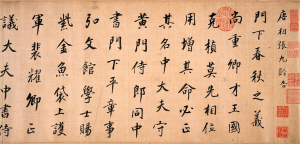 唐相張九齡告
門下春秋之義
尚重卿才王國
克楨莫先相位
用增其命必正
其名中大夫守
黄門侍郎同中
書門下平章事
弘文館學士賜
紫金魚袋上護
軍裴耀卿正
議大夫中書侍